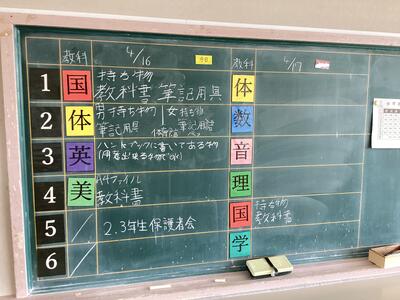 教科 4/16 今日 教科 4/17
1 国 持ち物 体
教科書 筆記用具
2 体 男持ち物 女持ち物 数
筆記用具 筆記用具
3 英 ハンドブックに書いてある物 音
4 美 A4ファイル 理
教科書
5 2.3年生保護者会 国 持ち物
教科書
6 学